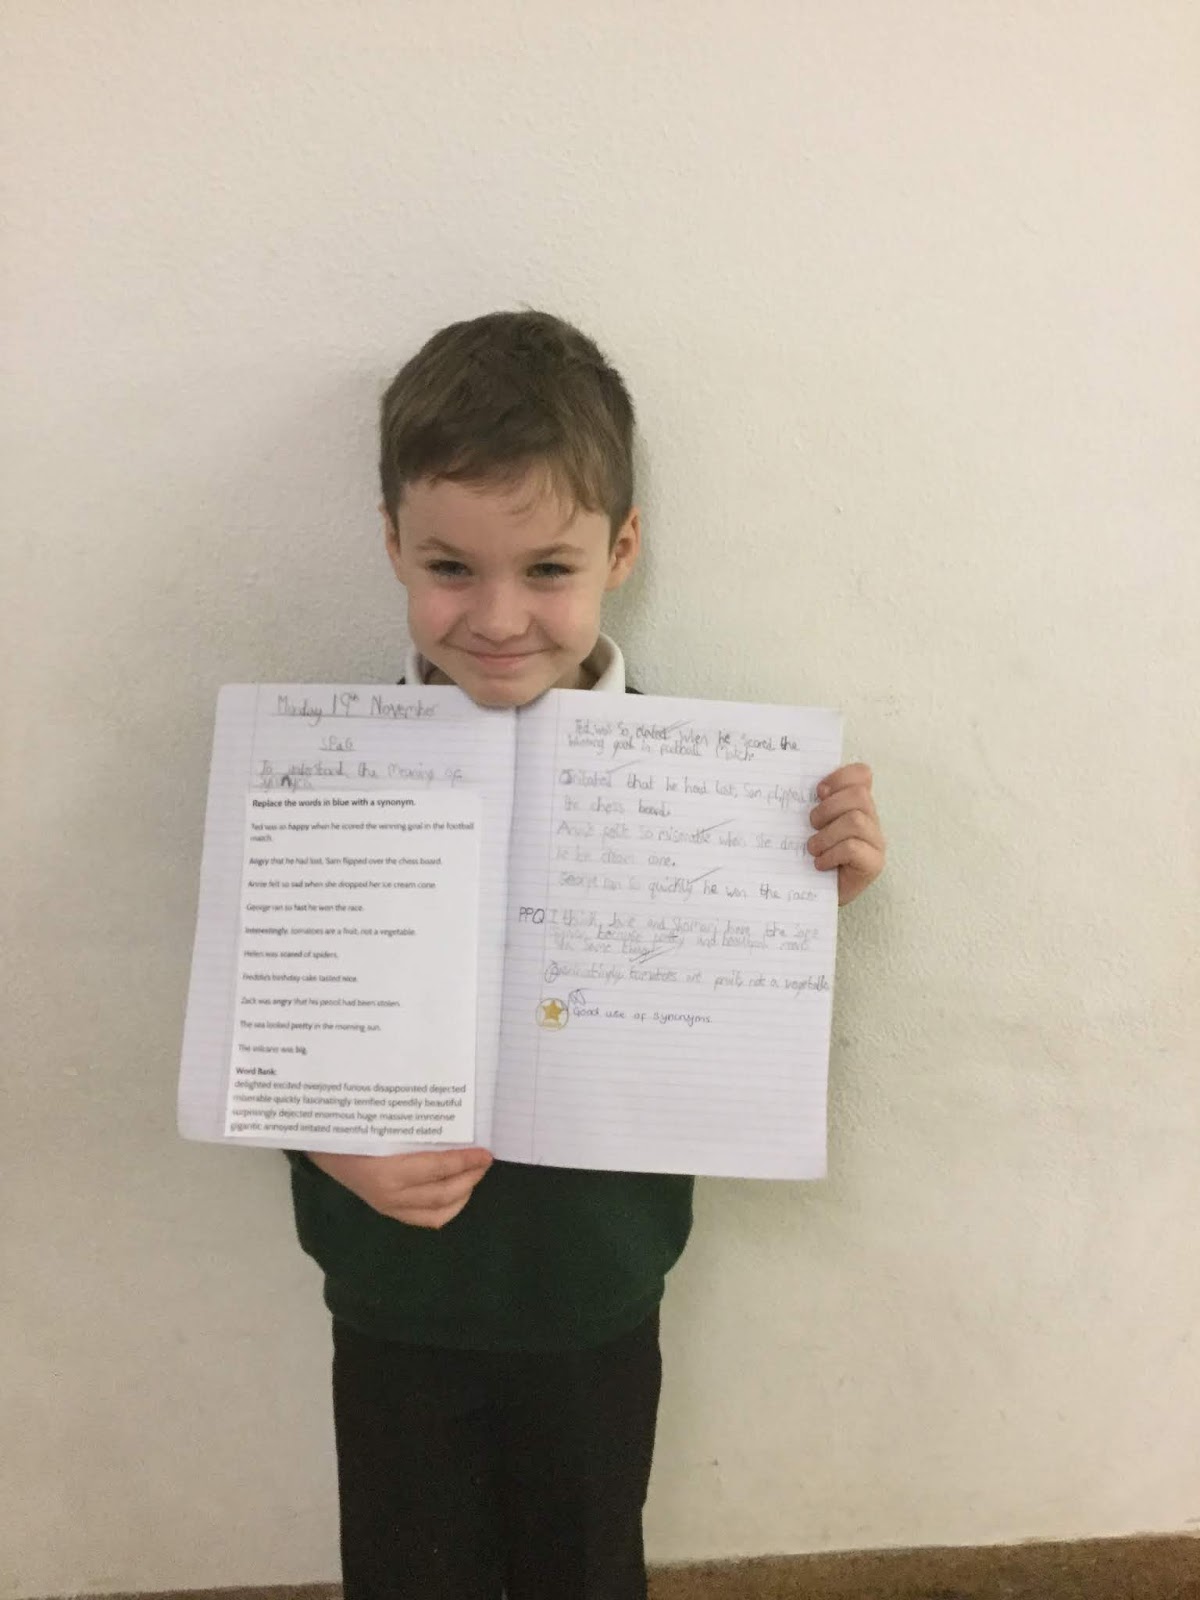 Monday 19th November
SPaG
To understand the meaning of
Replace the words in blue with a synonym.
Ted was so happy when he scored the winning goal in the football
match.
Angry that he had lost, Sam flipped over the chess board.
Annie felt so sad when she dropped her ice cream cone.
George ran so fast he won the race.
Interestingly, tomatoes are a fruit, not a vegetable.
Helen was scared of spiders.
Freddie's birthday cake tasted nice.
Zack was angry that his pencil had been stolen.
The sea looked pretty in the morning sun.
The volcano was big.
Word Bank:
delighted excited overjoyed furious disappointed dejected
miserable quickly fascinatingly terrified speedily beautiful
surprisingly dejected enormous huge massive immense
gigantic annoyed irritated resentful frightened elated
Ted was so elated when he scored the
winning goal in football match.
Irritated that he had lost, Sam flipped
the chess board.
Annie felt so miserable when she
cone.
George ran so quickly he won the race.
PPQ I think love and have the
because pretty and
the same
Fascinatingly tomatoes are fruit not a vegetable
Good use of synonyms.